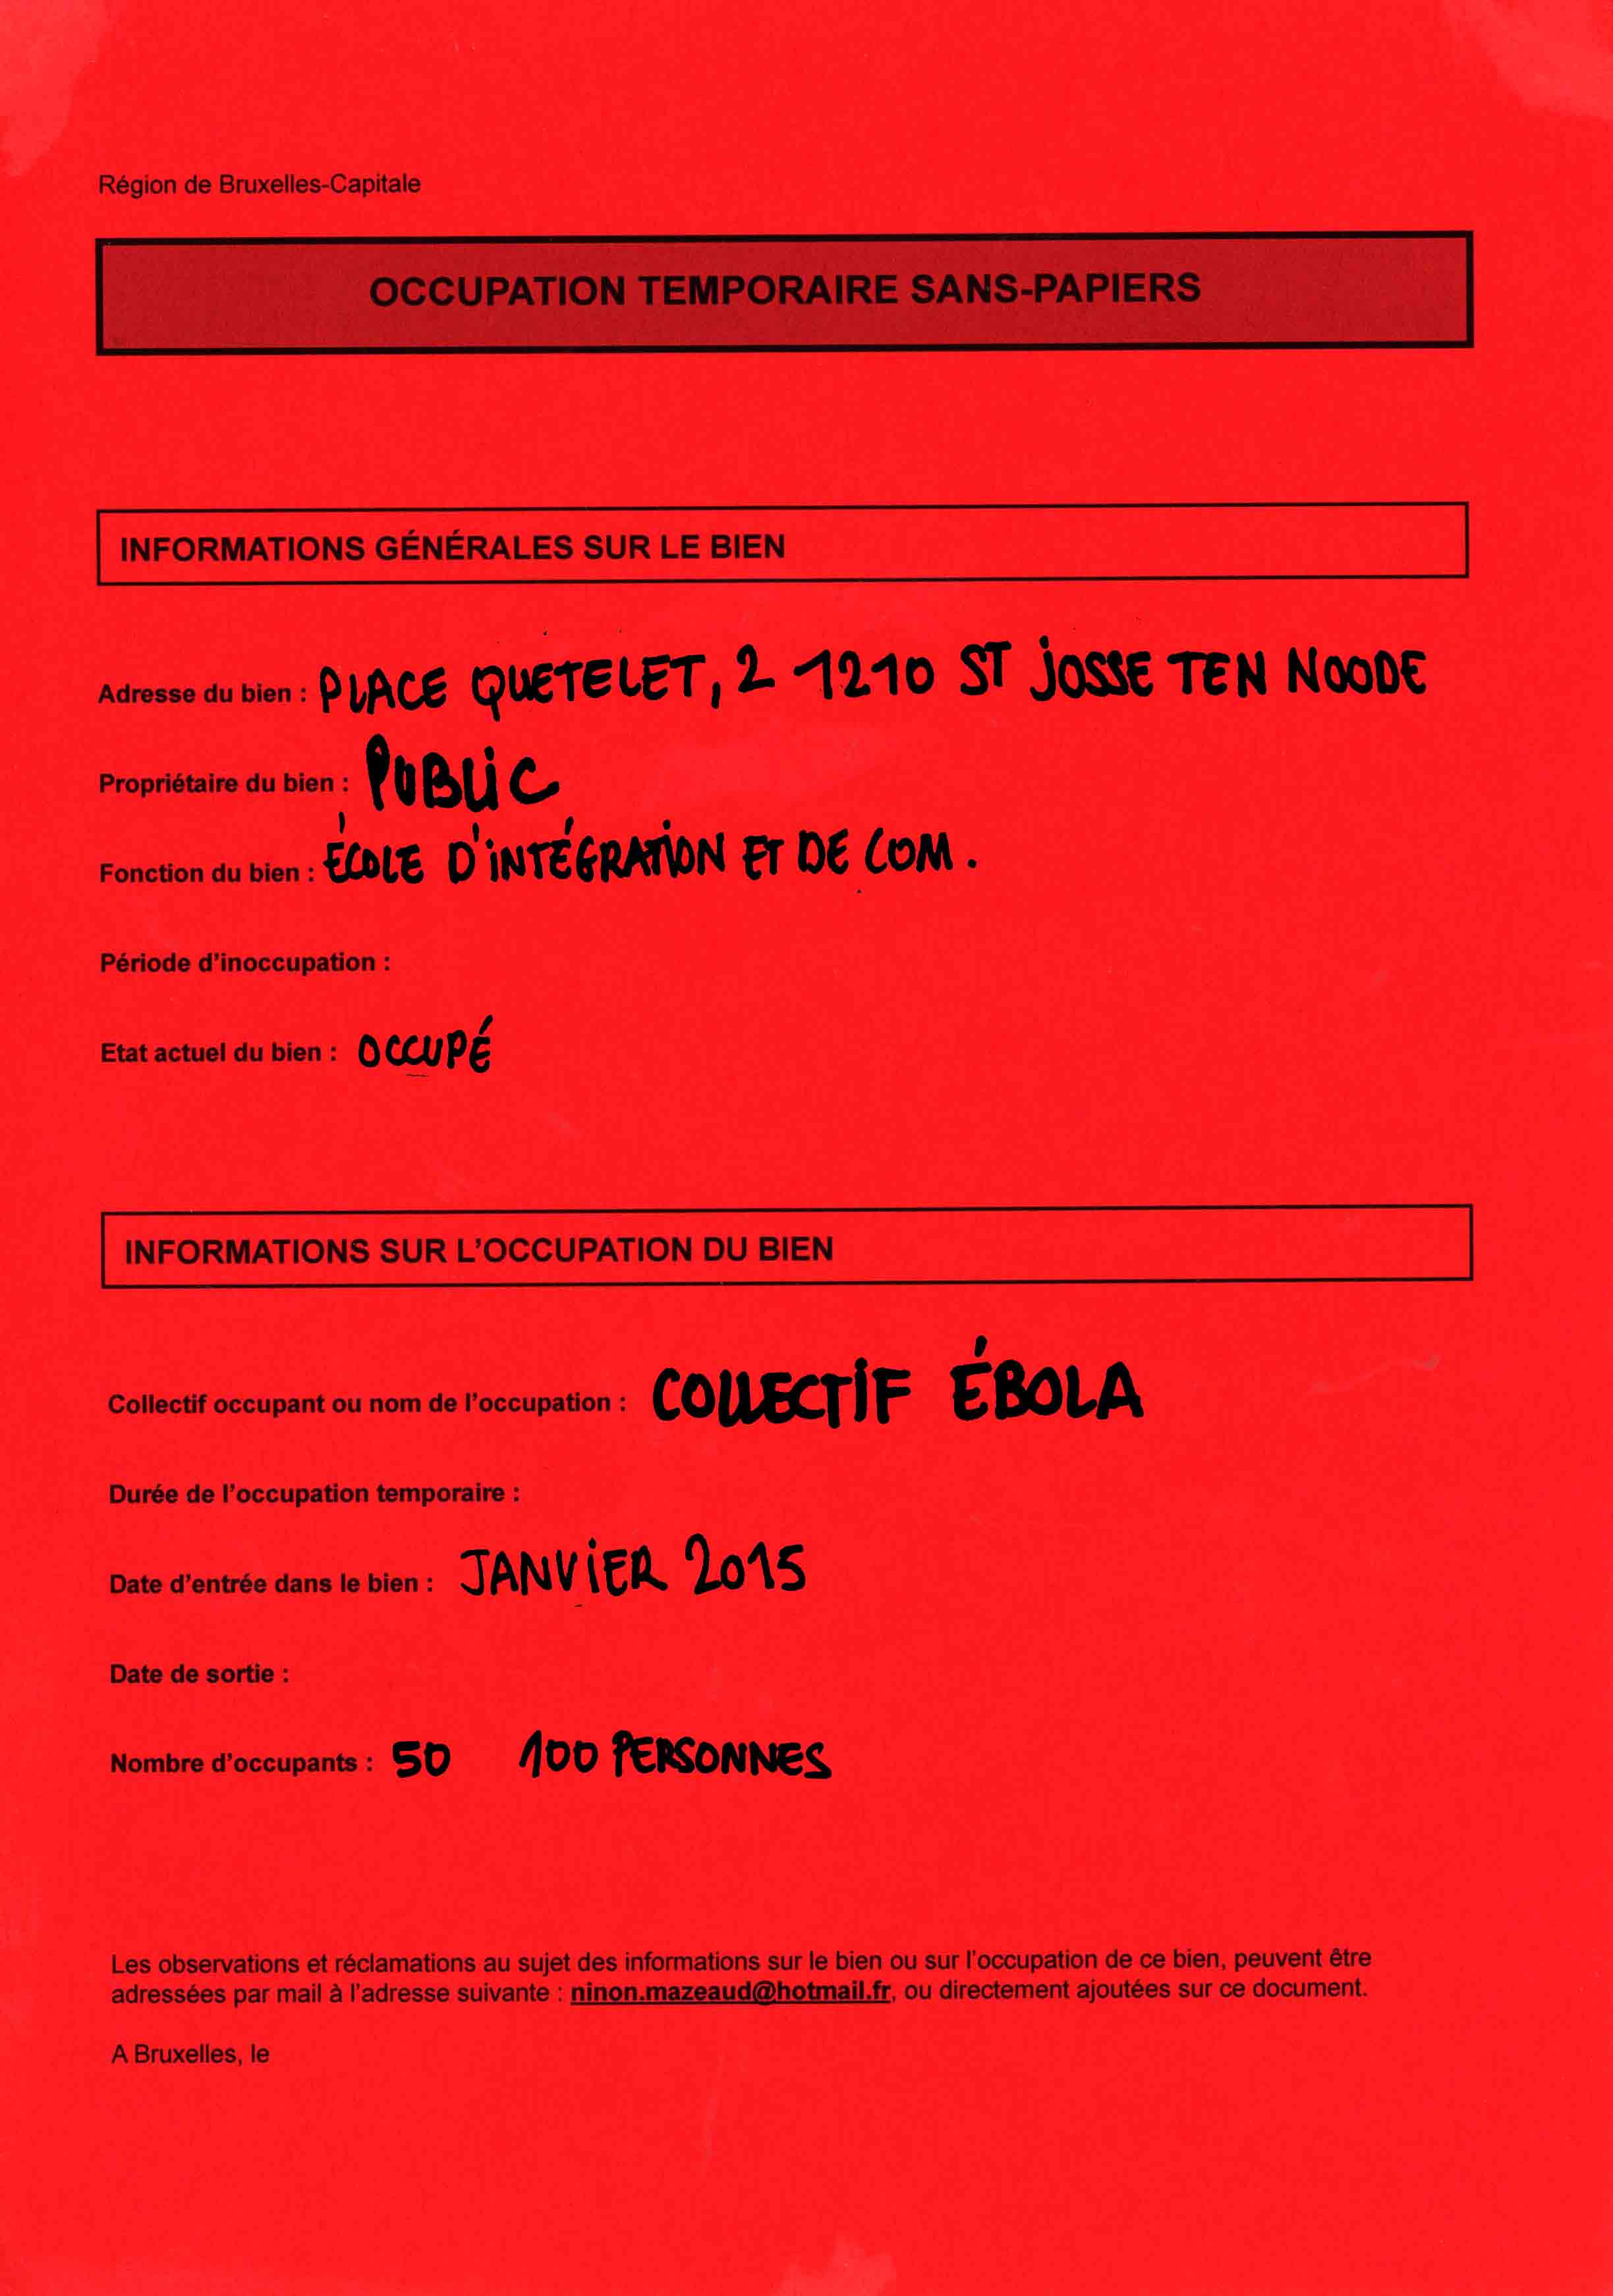 Région de Bruxelles-Capitale
OCCUPATION TEMPORAIRE SANS-PAPIERS
INFORMATIONS GÉNÉRALES SUR LE BIEN
Adresse du bien : PLACE QUETELET, 2 1210 ST JOSSE TEN NOODE
Propriétaire du bien : PUBLIC
Fonction du bien : ÉCOLE D'INTÉGRATION ET DE COM.
Période d'inoccupation :
Etat actuel du bien : OCCUPÉ
INFORMATIONS SUR L'OCCUPATION DU BIEN
Collectif occupant ou nom de l'occupation : COLLECTIF ÉBOLA
Durée de l'occupation temporaire :
Date d'entrée dans le bien : JANVIER 2015
Date de sortie :
Nombre d'occupants : 50 100 PERSONNES
Les observations et réclamations au sujet des informations sur le bien ou sur l'occupation de ce bien, peuvent être
adressées par mail à l'adresse suivante : ninon.mazeaud@hotmail.fr, ou directement ajoutées sur ce document.
A Bruxelles, le